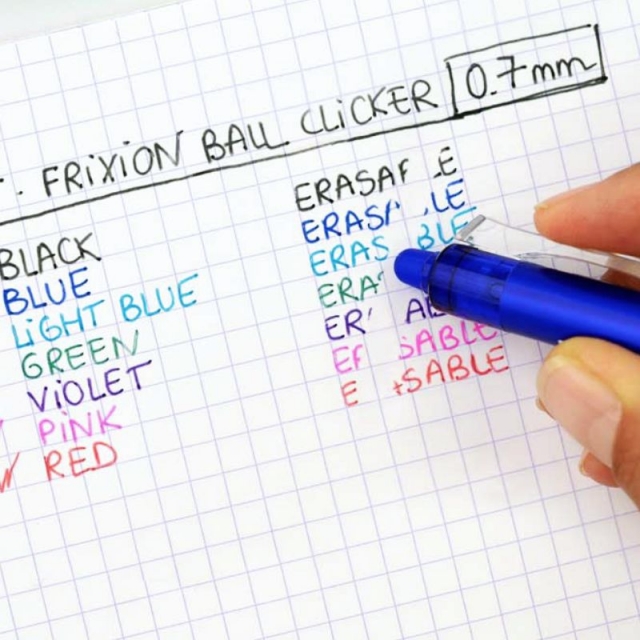 FRiXiON BALL CLiCKER 0.7mm
BLACK
BLUE
LiGHT BLUE
GREEN
ViOLET
PiNK
RED
ERASA E
ERAS LE
ERAS BLE
ERA
ER A
E SABLE
E SABLE